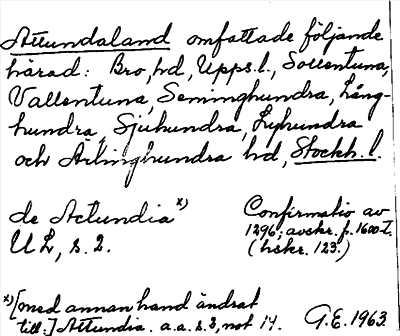 Attundaland omfattade följande
härad: Bro, hd, Upps. l., Sollentuna,
Vallentuna, Seminghundra, Lång-
hundra, Sjuhundra, Lyhundra
och Ärlinghundra hd, Stockh. l.
de Actundia x)
UL, s. 2.
Confirmatio av
1296; avskr. fr. 1600-t.
(hskr. 123.)
x) [med annan hand ändrat
till:] Attundia. a.a. s. 3, not 14.
G.E. 1963.